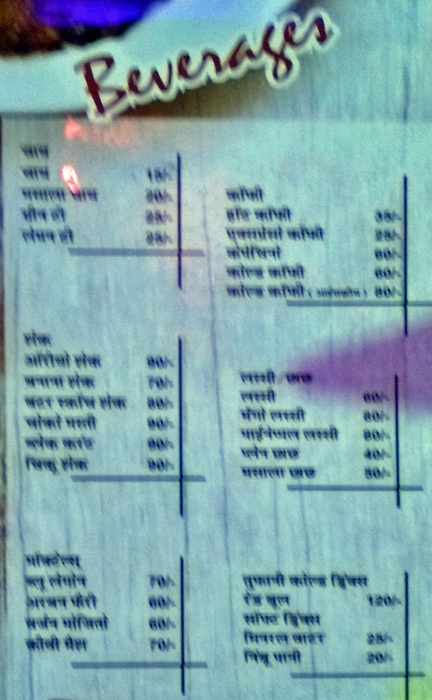 Beverages
चाय
चाय 15/-
मसाला चाय 20/-
ग्रीन टी 25/-
लेमन टी 25/-
कॉफी
हॉट कॉफी 35/-
एक्सप्रेसो कॉफी 25/-
60/-
कोल्ड कॉफी 60/-
कोल्ड कॉफी 80/-
शेक
ओरियो शेक 90/-
बनाना शेक 70/-
बटर स्कॉच शेक 80/-
चोको मस्ती 90/-
90/-
चिकू शेक 90/-
लस्सी / छाछ
लस्सी 60/-
मेंगो लस्सी 80/-
पाईनेप्पल लस्सी 80/-
प्लेन छाछ 40/-
मसाला छाछ 50/-
मॉकटेल्स
ब्लू लगुन 70/-
60/-
वर्जिन मोजितो 60/-
70/-
तुफानी कोल्ड ड्रिंक्स
रेड बुल 120/-
सॉफ्ट ड्रिंक्स
मिनरल वाटर 25/-
निंबू पानी 20/-